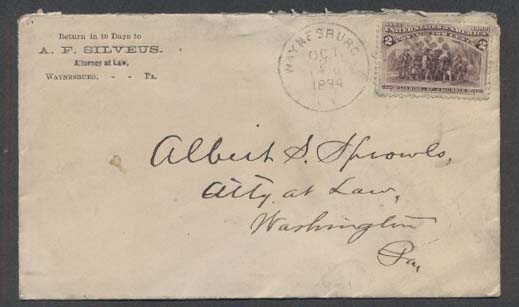 Return in 10 Days to
A. F. SILVEUS.
Attorney at Law,
WAYNESBURG, - - PA.
WAYNESBURG
OCT
1894
UNITED STATES OF AMERICA
2 2
Albert S. Sprowls,
Atty. at Law,
Washington
Pa,